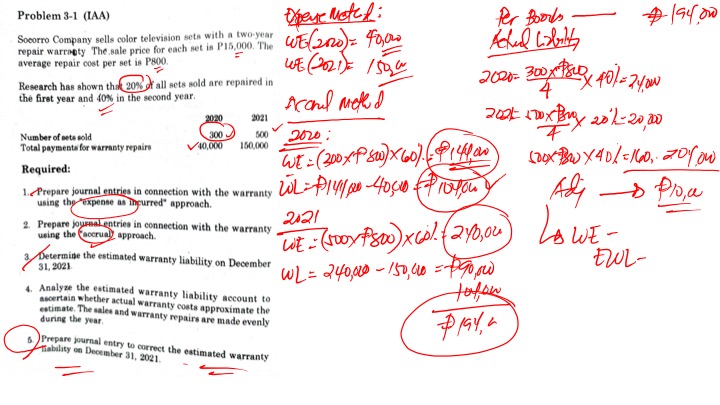 Problem 3-1 (IAA)
Socorro Company sells color television sets with a two-year
repair warranty The sale price for each set is P15,000. The
average repair cost per set is P800.
Research has shown that 20% of all sets sold are repaired in
the first year and 40% in the second year.
2020 2021
Number of sets sold 300 500
Total payments for warranty repairs 40,000 150,000
Required:
1. Prepare journal entries in connection with the warranty
using the "expense as incurred" approach.
2. Prepare journal entries in connection with the warranty
using the "accrual" approach.
3. Determine the estimated warranty liability on December
31, 2021.
4. Analyze the estimated warranty liability account to
ascertain whether actual warranty costs approximate the
estimate. The sales and warranty repairs are made evenly
during the year.
5. Prepare journal entry to correct the estimated warranty
liability on December 31, 2021.
Expense Method:
WE(2020) = 40,000
WE(2021) = 150,000
Accrual Method
2020:
WE = (300 x ₱800) x 60% = ₱144,000
WL = ₱144,000 - 40,000 = ₱104,000
2021
WE = (500 x ₱800) x 60% = 240,000
WL = 240,000 - 150,000 = ₱90,000
104,000
₱194,000
Per Books → ₱194,000
Actual Liability
2020 = 300 x ₱800 / 4 x 40% = 24,000
2021 = 500 x ₱800 / 4 x 20% = 20,000
500 x 800 x 40% = 160, 204,000
Adj → ₱10,000
WE -
EWL -